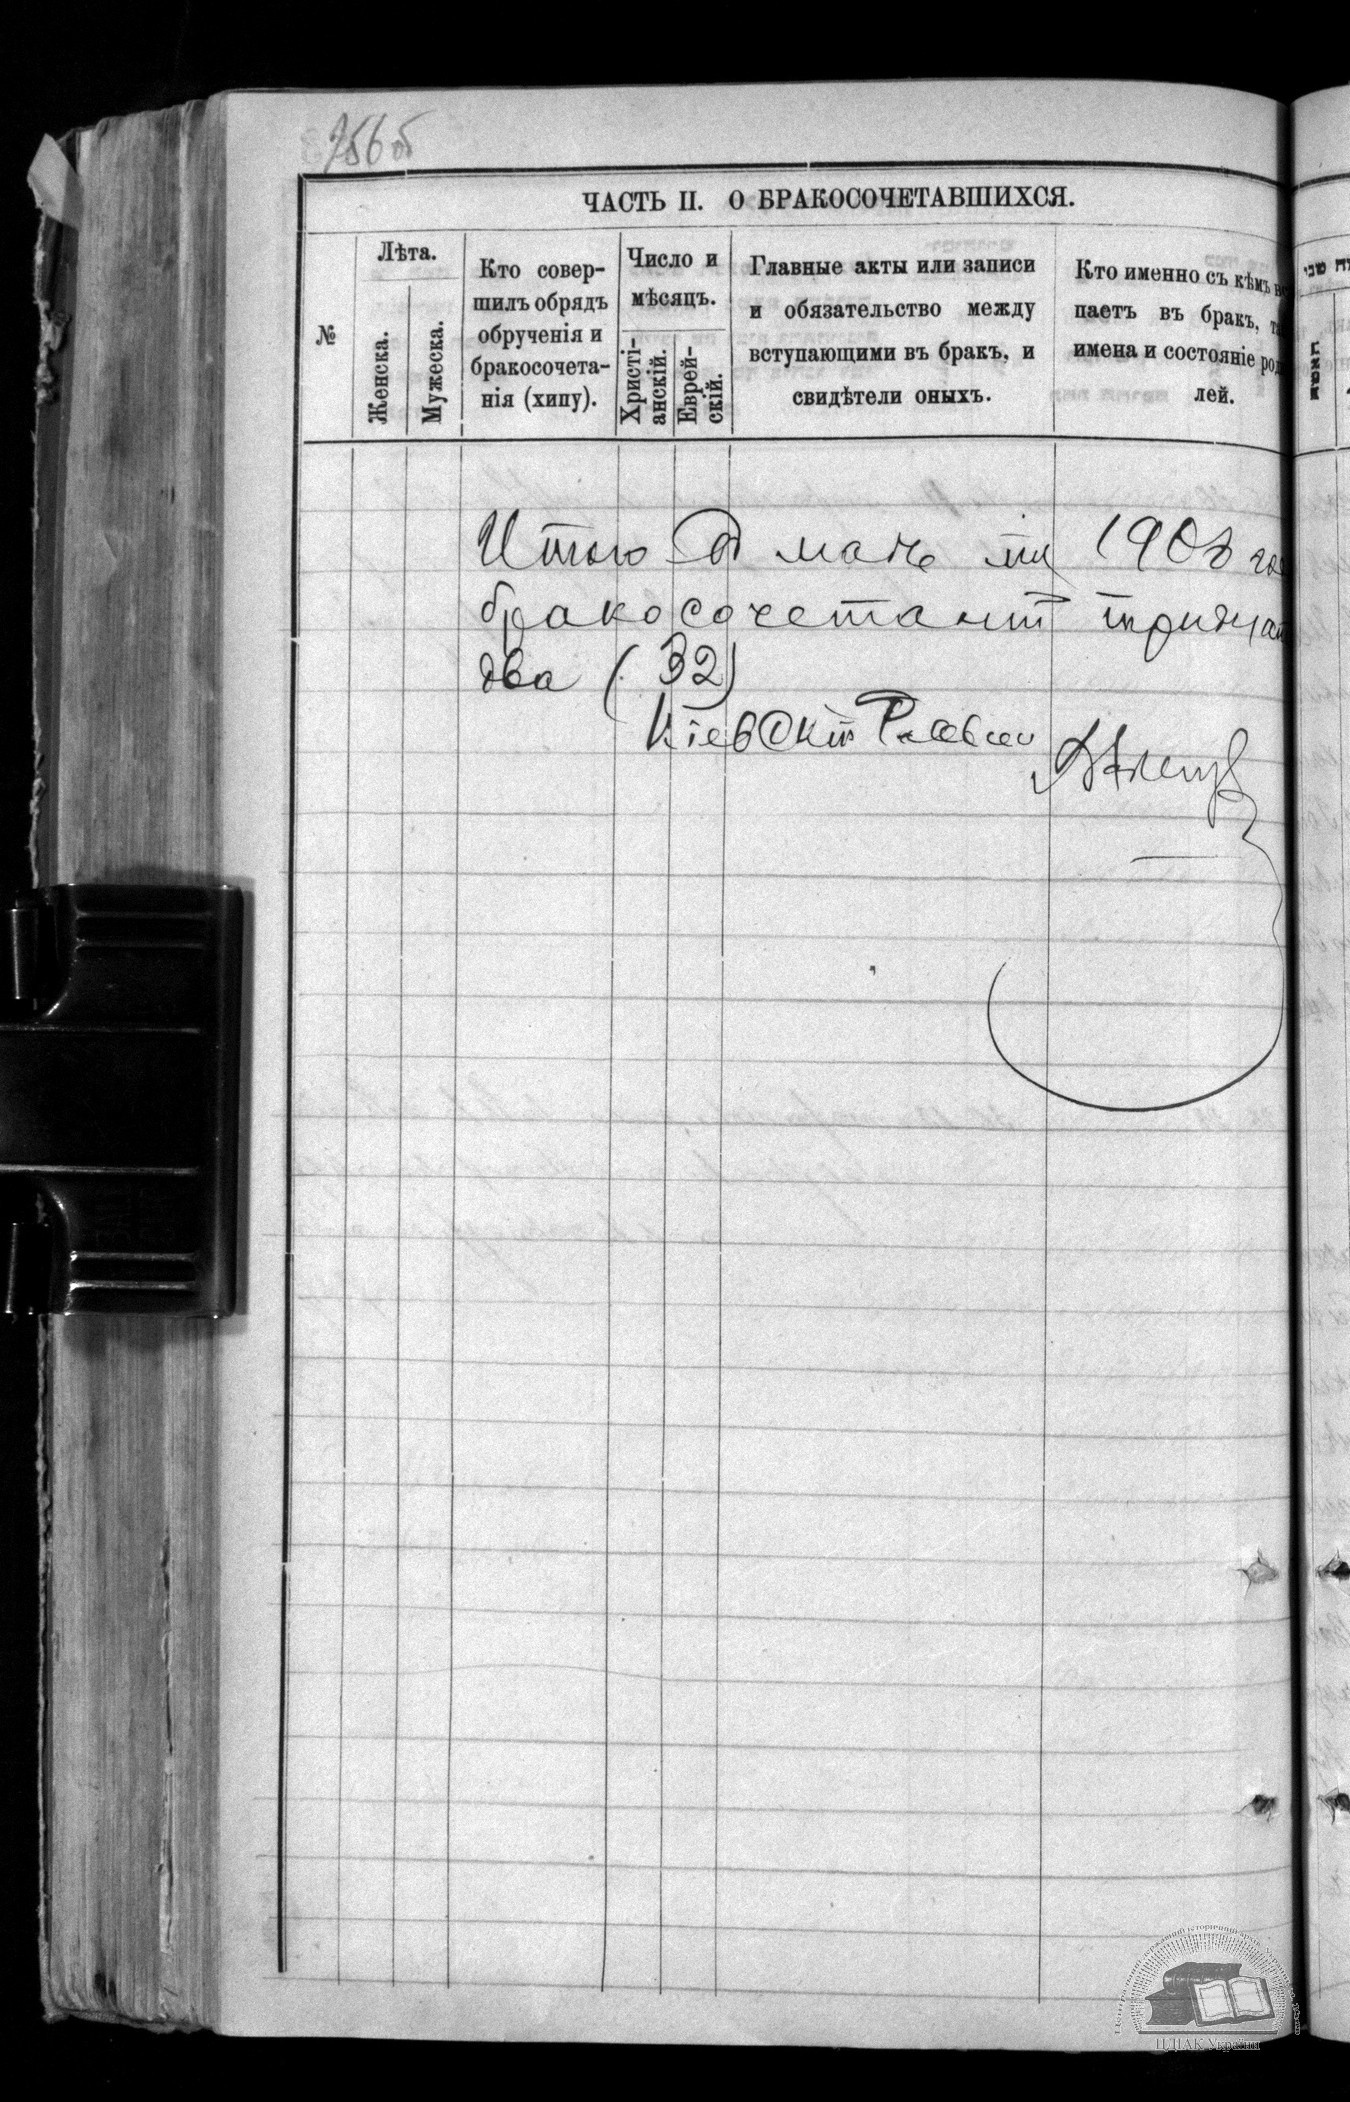 756 об
ЧАСТЬ II. О БРАКОСОЧЕТАВШИХСЯ.
№
Лѣта.
Женска.
Мужеска.
Кто совер-
шилъ обрядъ
обрученія и
бракосочета-
нія (хипу).
Число и
мѣсяцъ.
Христі-
анскій.
Еврей-
скій.
Главные акты или записи
и обязательство между
вступающими въ бракъ, и
свидѣтели оныхъ.
Кто именно съ кѣмъ вс
паетъ въ бракъ, та
имена и состояніе род
лей.
Итого въ маѣ м. 1908 го
бракосочетаній тридцат
два (32)
Кіевскій Раввин
ЦДІАК України